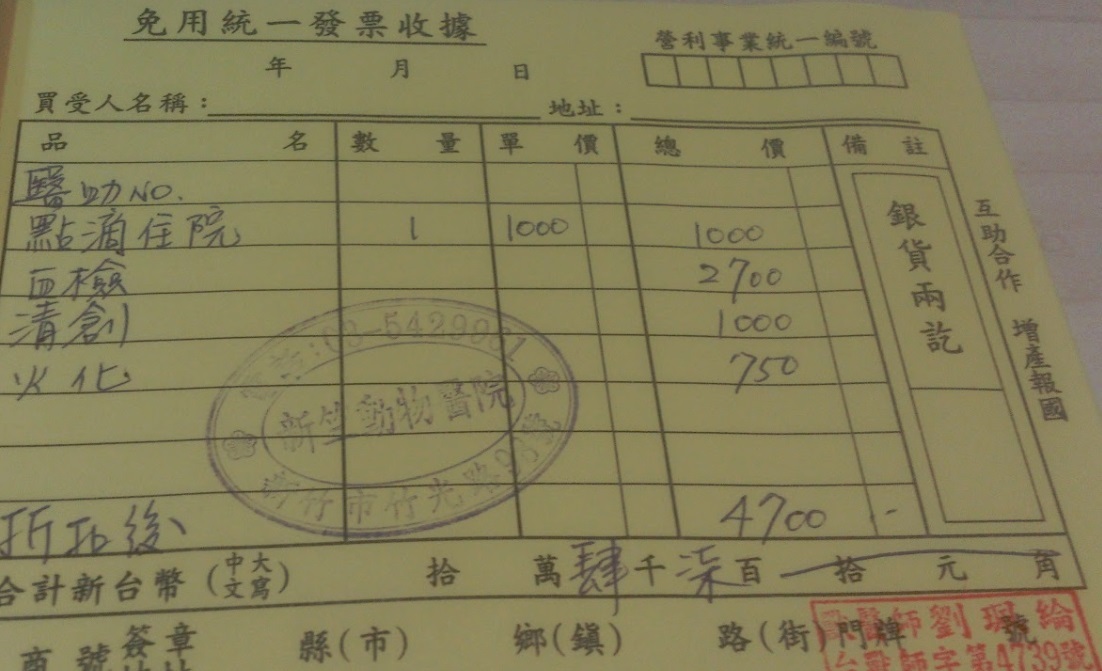 免用統一發票收據
營利事業統一編號
年 月 日
買受人名稱： 地址：
品名 數量 單價 總價 備註
醫助NO.
點滴住院 1 1000 1000
血檢 2700
清創 1000
火化 750
折扣後 4700 -
銀貨兩訖
互助合作 增產報國
新竺動物醫院
新竹市竹光路
合計新台幣(中文大寫) 拾 萬肆千柒百 拾 元 角
商號簽章 縣(市) 鄉(鎮) 路(街) 門牌 號
醫師劉
字第4739號